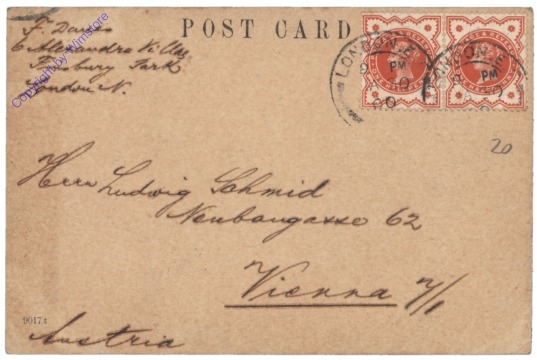 POST CARD
F. Davis
6 Alexandra Villas
Finsbury Park
London N.
Copyright by Wimstore
LONDON. E.
PM
LONDON. E.
PM
20
Herrn Ludwig Schmid
Neubaugasse 62
Vienna 7/1
9017 t
Austria